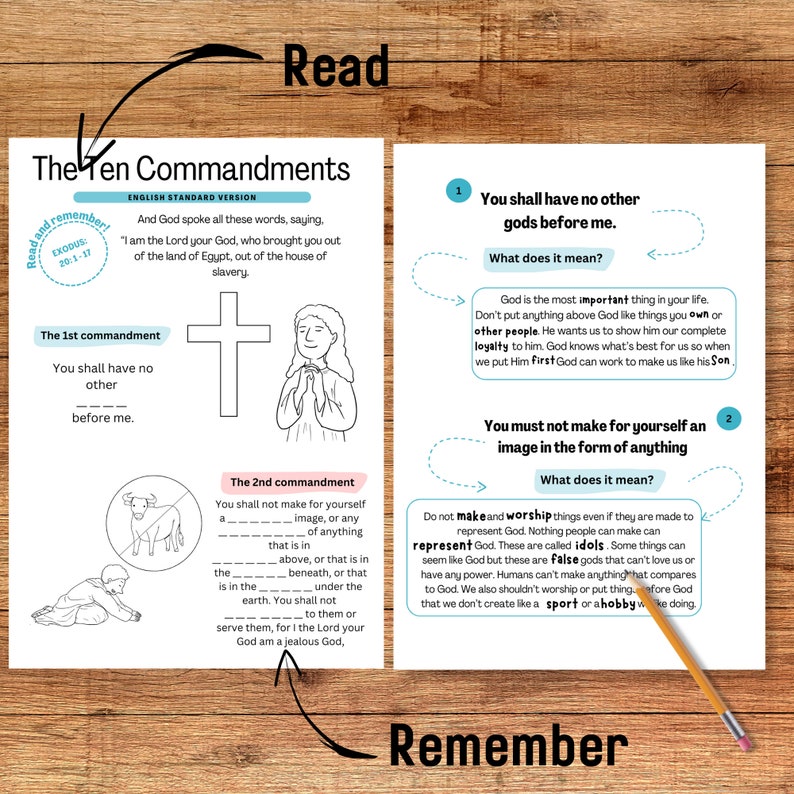 Read
The Ten Commandments
ENGLISH STANDARD VERSION
Read and remember!
EXODUS:
20:1 - 17
And God spoke all these words, saying,
"I am the Lord your God, who brought you out
of the land of Egypt, out of the house of
slavery.
The 1st commandment
You shall have no
other
_ _ _ _
before me.
The 2nd commandment
You shall not make for yourself
a _ _ _ _ _ _ image, or any
_ _ _ _ _ _ _ _ of anything
that is in
_ _ _ _ _ _ above, or that is in
the _ _ _ _ _ beneath, or that
is in the _ _ _ _ _ under the
earth. You shall not
_ _ _ _ _ _ _ to them or
serve them, for I the Lord your
God am a jealous God,
1
You shall have no other
gods before me.
What does it mean?
God is the most important thing in your life.
Don't put anything above God like things you own or
other people. He wants us to show him our complete
loyalty to him. God knows what's best for us so when
we put Him first God can work to make us like his Son .
2
You must not make for yourself an
image in the form of anything
What does it mean?
Do not make and worship things even if they are made to
represent God. Nothing people can make can
represent God. These are called idols . Some things can
seem like God but these are false gods that can't love us or
have any power. Humans can't make anything that compares
to God. We also shouldn't worship or put things before God
that we don't create like a sport or a hobby we like doing.
Remember